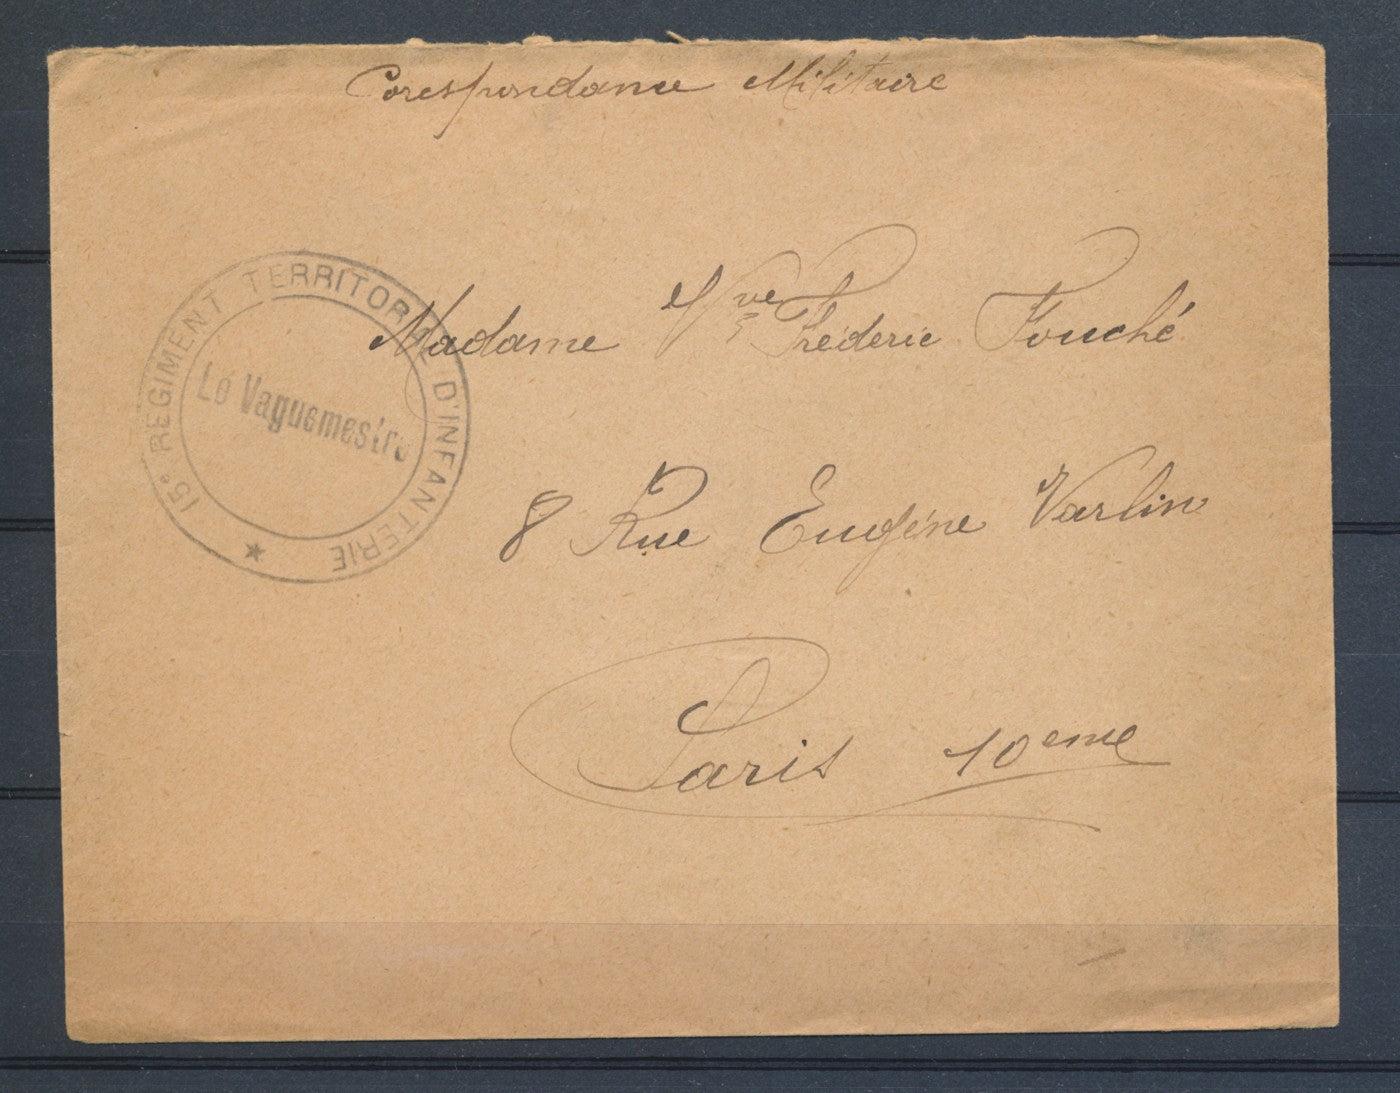 Corespondance Militaire
15e REGIMENT TERRITORIAL D'INFANTERIE
Le Vaguemestre
Madame Vve Fréderic Fouché
8 Rue Eugéne Varlin
Paris 10eme